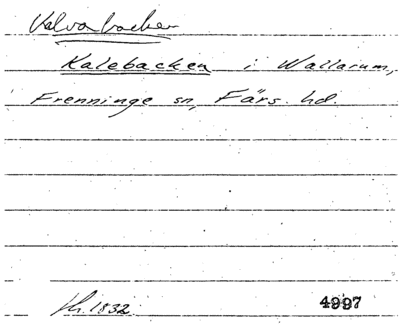 Kalvabacken
Kalebacken i Wallarum,
Frenninge sn, Färs hd.
1832 4997